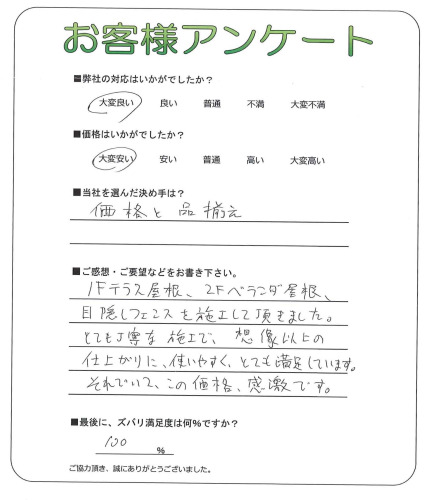 お客様アンケート
■弊社の対応はいかがでしたか？
大変良い 良い 普通 不満 大変不満
■価格はいかがでしたか？
大変安い 安い 普通 高い 大変高い
■当社を選んだ決め手は？
価格と品揃え
■ご感想・ご要望などをお書き下さい。
1Fテラス屋根、2Fベランダ屋根、
目隠しフェンスを施工して頂きました。
とても丁寧な施工で、想像以上の
仕上がりに、使いやすく、とても満足しています。
それでいて、この価格、感激です。
■最後に、ズバリ満足度は何%ですか？
100 %
ご協力頂き、誠にありがとうございました。